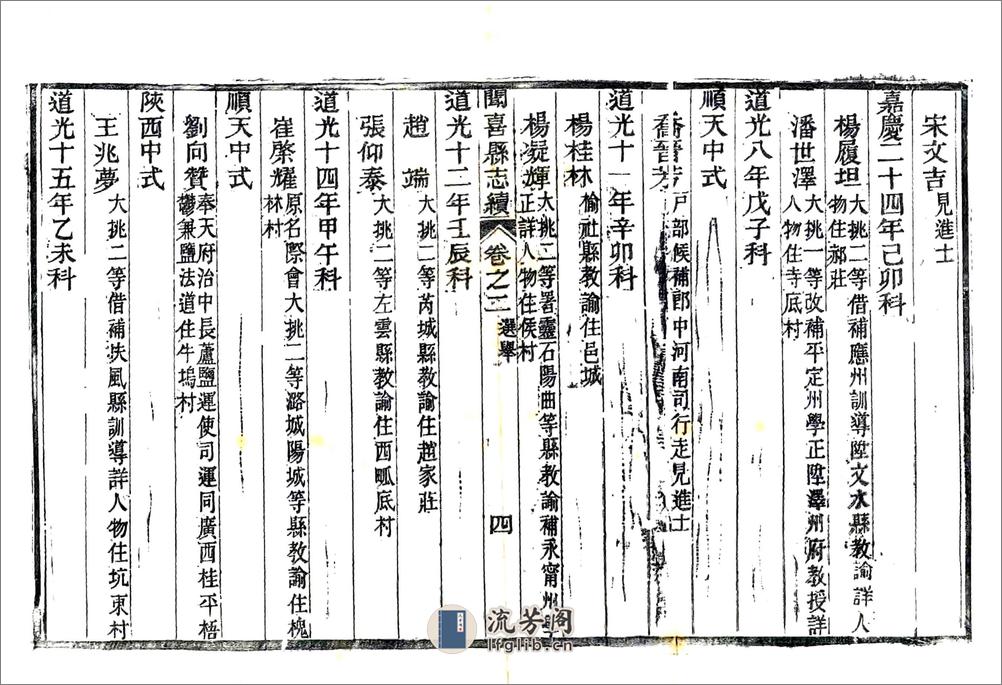 宋文吉見進士
嘉慶二十四年己卯科
楊履坦大挑二等借補應州訓導陞文水縣教諭詳人
物住郝莊
潘世澤大挑一等改補平定州學正陞澤州府教授詳
人物住寺底村
道光八年戊子科
順天中式
喬晉芳戸部候補郎中河南司行走見進士
道光十一年辛卯科
楊桂林榆社縣教諭住邑城
楊凝輝大挑二等署靈石陽曲等縣教諭補永甯州學
正詳人物住侯村
聞喜縣志續 卷之三 選舉 四
道光十二年壬辰科
趙端大挑二等芮城縣教諭住趙家莊
張仰泰大挑二等左雲縣教諭住西呱底村
道光十四年甲午科
崔縻耀原名際會大挑二等潞城陽城等縣教諭住槐
林村
順天中式
劉向贊奉天府治中長蘆鹽運使司運同廣西桂平梧
鬱兼鹽法道住牛塢村
陝西中式
王兆夢大挑二等借補扶風縣訓導詳人物住坑東村
道光十五年乙未科
流芳閣
lfglib.cn